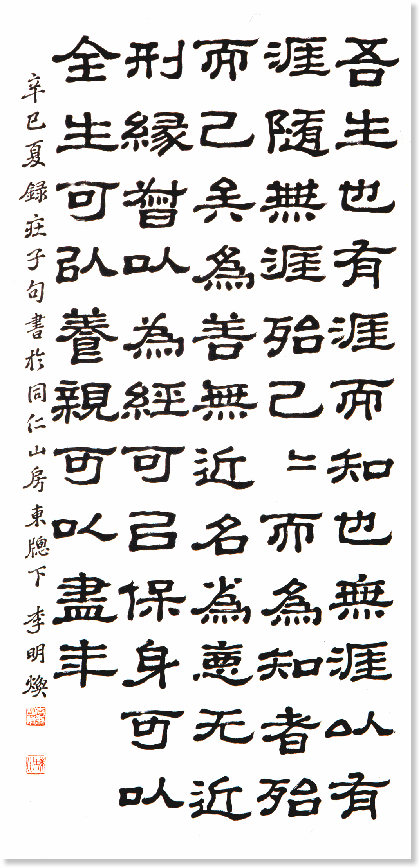 吾生也有涯而知也無涯以有
涯隨無涯殆已〻而為知者殆
而已矣為善無近名為惡无近
刑緣督以為經可以保身可以
全生可以養親可以盡年
辛巳夏録莊子句書於同仁山房東牕下 李明煥